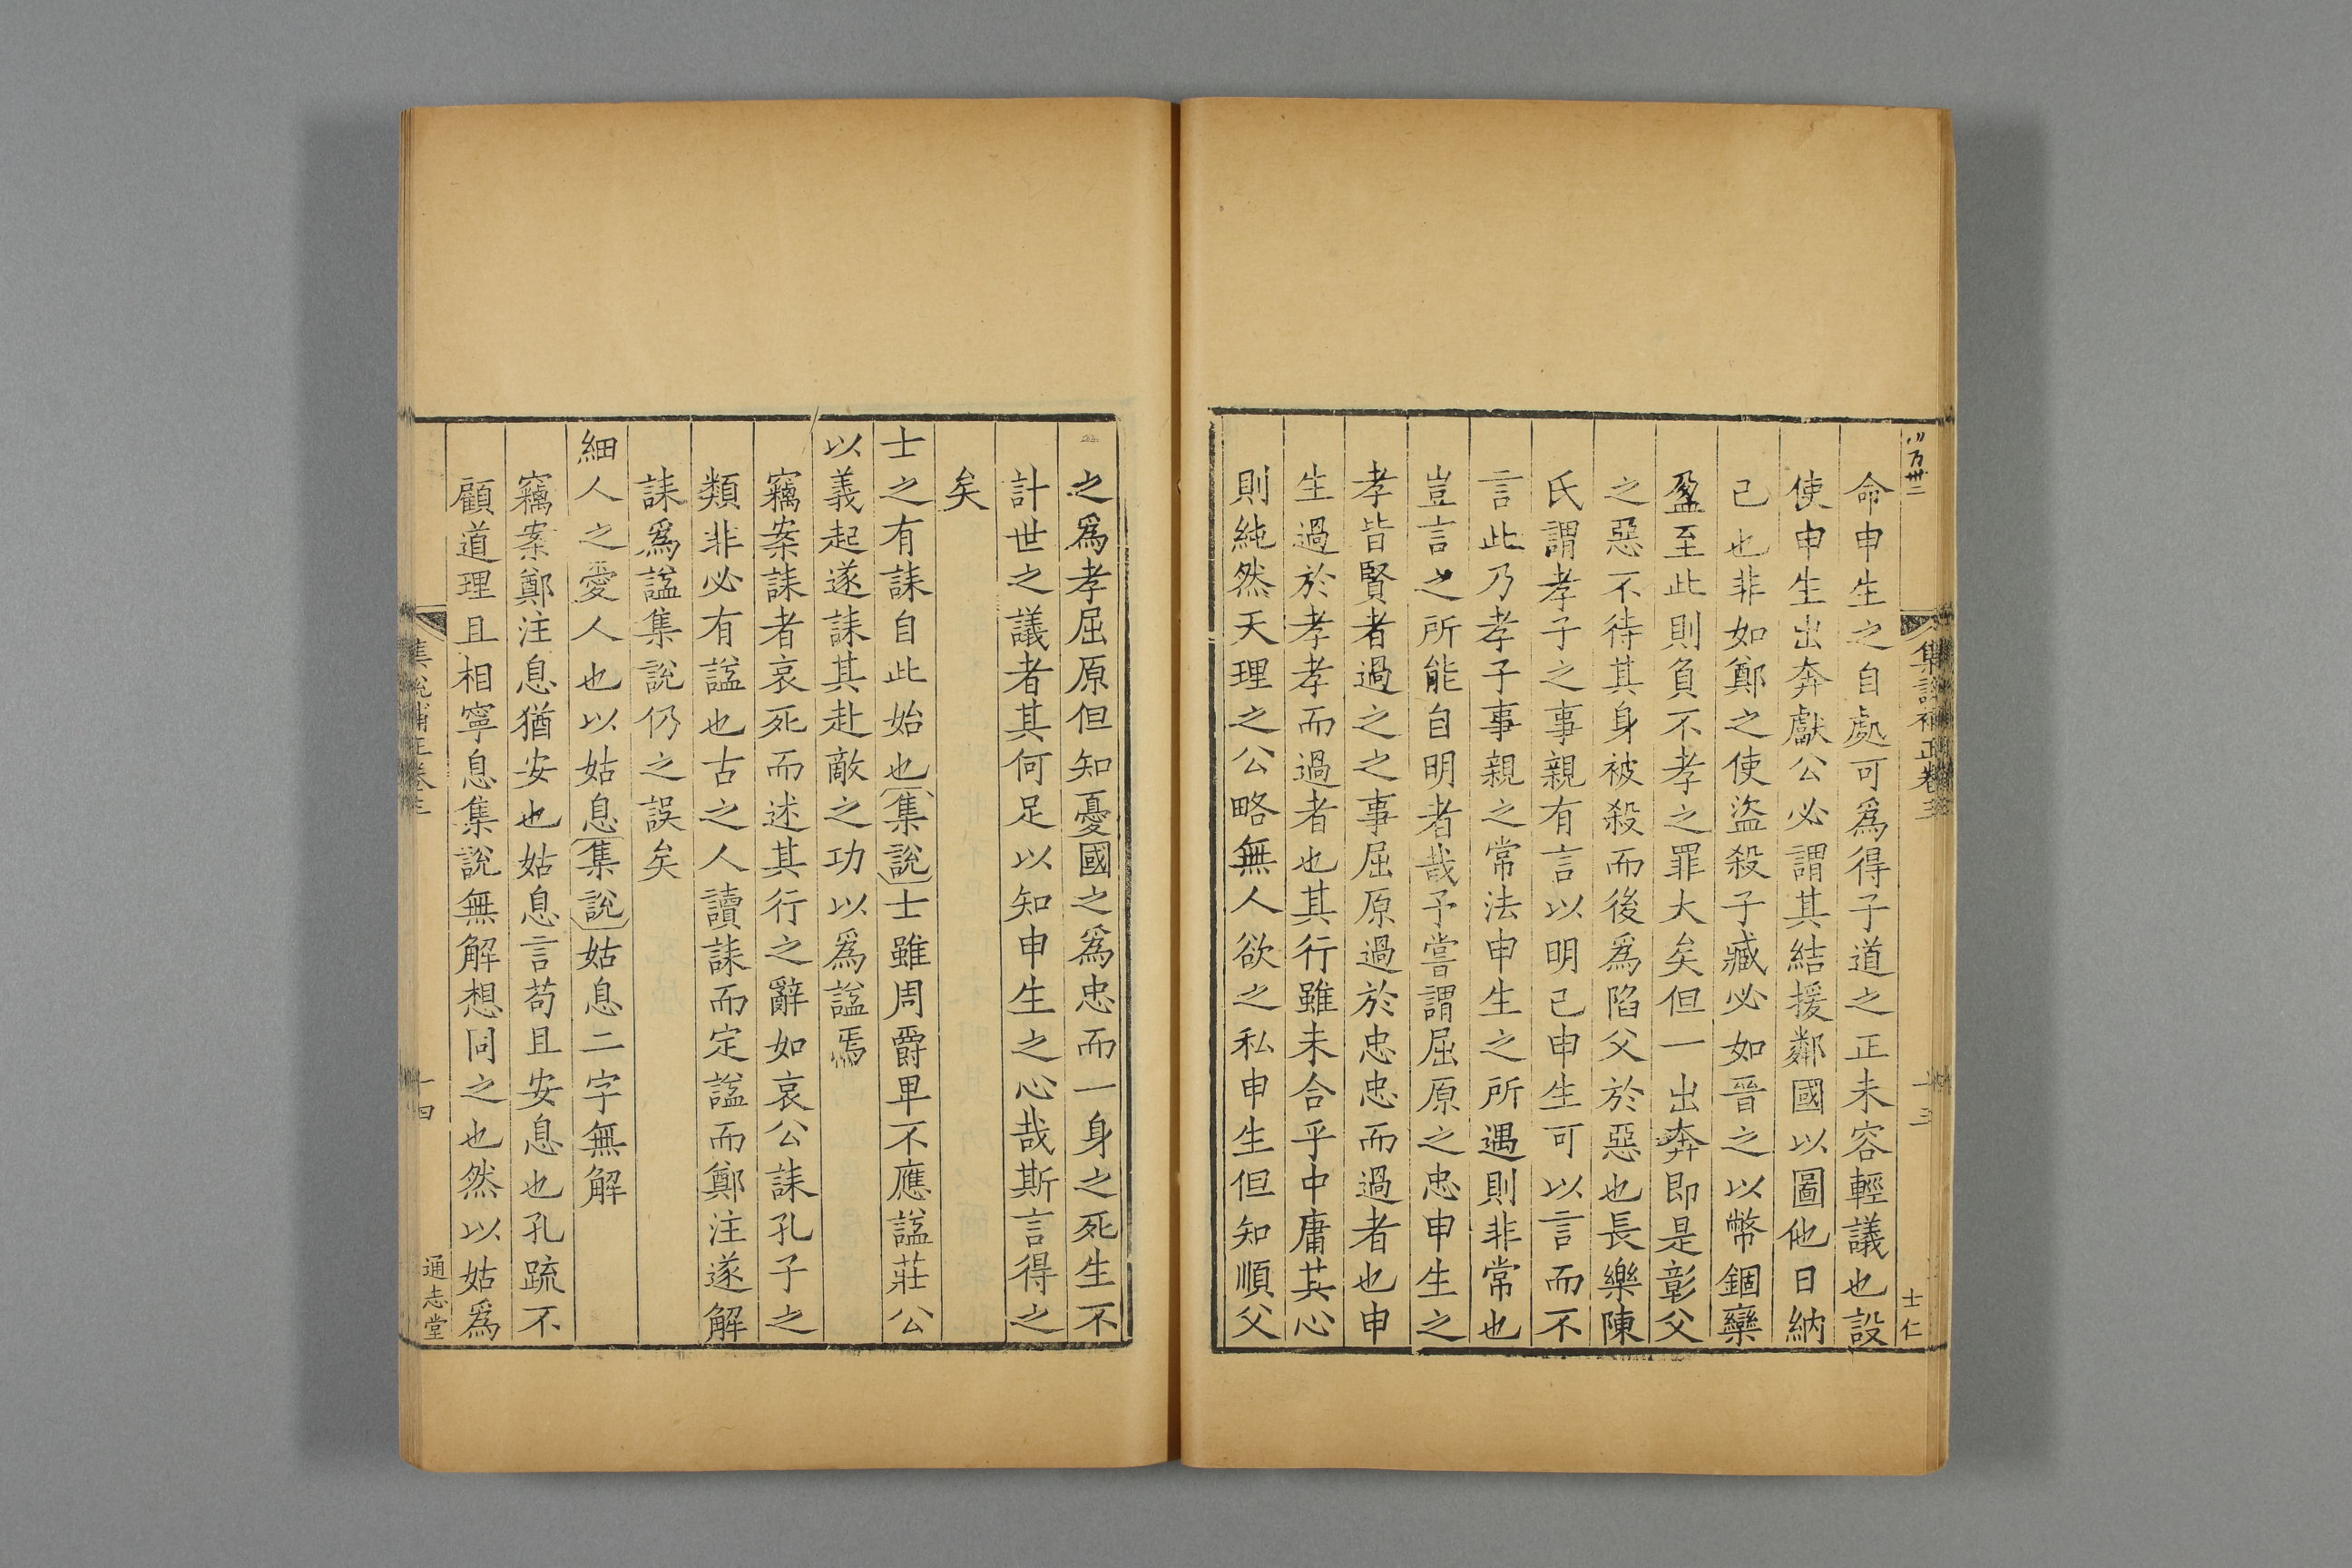 集說補正卷三
十三
士仁
命申生之自處可爲得子道之正未容輕議也設
使申生出奔獻公必謂其結援鄰國以圖他日納
己也非如鄭之使盜殺子臧必如晉之以幣錮欒
盈至此則負不孝之罪大矣但一出奔即是彰父
之惡不待其身被殺而後爲陷父於惡也長樂陳
氏謂孝子之事親有言以明己申生可以言而不
言此乃孝子事親之常法申生之所遇則非常也
豈言之所能自明者哉予嘗謂屈原之忠申生之
孝皆賢者過之之事屈原過於忠忠而過者也申
生過於孝孝而過者也其行雖未合乎中庸其心
則純然天理之公略無人欲之私申生但知順父
之爲孝屈原但知憂國之爲忠而一身之死生不
計世之議者其何足以知申生之心哉斯言得之
矣
士之有誄自此始也集說士雖周爵卑不應諡莊公
以義起遂誄其赴敵之功以爲諡焉
竊案誄者哀死而述其行之辭如哀公誄孔子之
類非必有諡也古之人讀誄而定諡而鄭注遂解
誄爲諡集說仍之誤矣
細人之愛人也以姑息集說姑息二字無解
竊案鄭注息猶安也姑息言苟且安息也孔疏不
顧道理且相寧息集說無解想同之也然以姑爲
集說補正卷三
十四
通志堂